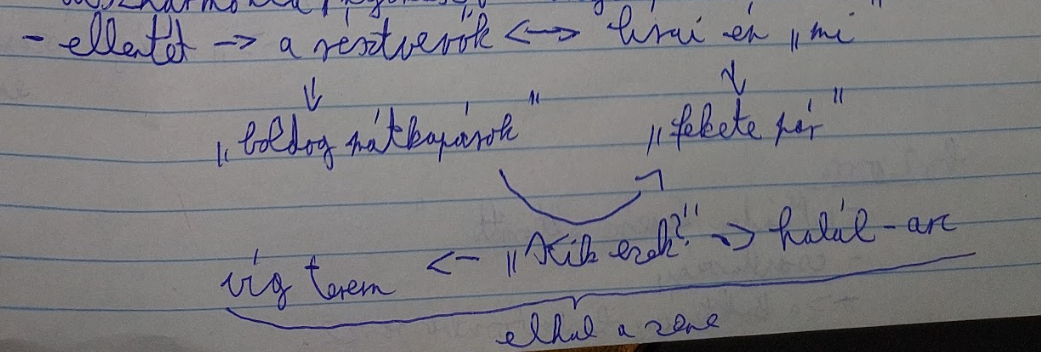 - ellentét -> a résztvevők <-> lírai én „mi"
„boldog mátkapárok" „fekete pár"
víg terem <- „Kik ezek?" -> halál-arc
elhal a zene